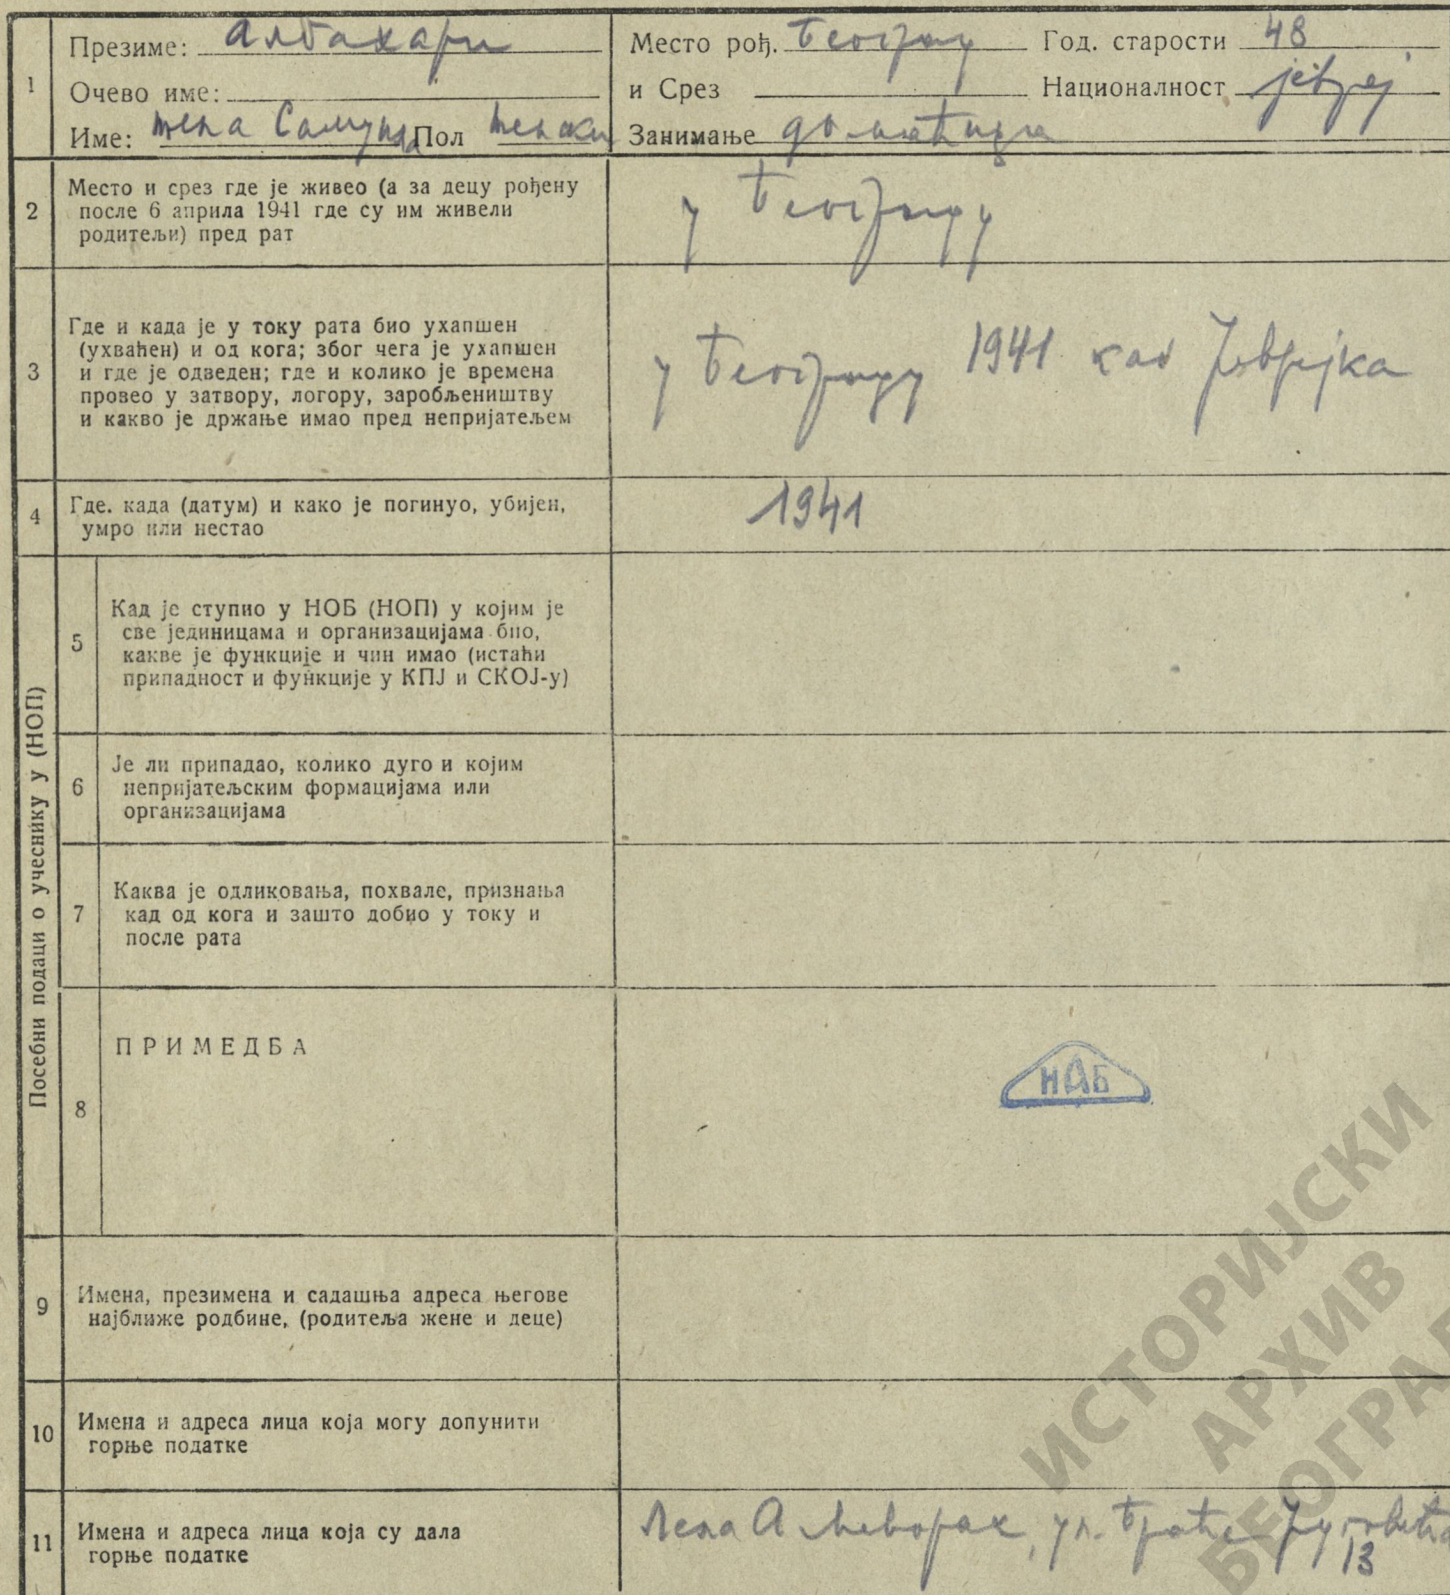 1
Презиме: Албахари
Очево име:
Име: жена Самуила Пол женски
Место рођ. Београд Год. старости 48
и Срез Националност јевреј
Занимање домаћица
2 Место и срез где је живео (а за децу рођену
после 6 априла 1941 где су им живели
родитељи) пред рат
у Београду
3 Где и када је у току рата био ухапшен
(ухваћен) и од кога; због чега је ухапшен
и где је одведен; где и колико је времена
провео у затвору, логору, заробљеништву
и какво је држање имао пред непријатељем
у Београду 1941 као Јеврејка
4 Где. када (датум) и како је погинуо, убијен,
умро или нестао
1941
Посебни подаци о учеснику у (НОП)
5 Кад је ступио у НОБ (НОП) у којим је
све јединицама и организацијама био,
какве је функције и чин имао (истаћи
припадност и функције у КПЈ и СКОЈ-у)
6 Је ли припадао, колико дуго и којим
непријатељским формацијама или
организацијама
7 Каква је одликовања, похвале, признања
кад од кога и зашто добио у току и
после рата
8 ПРИМЕДБА
НАБ
9 Имена, презимена и садашња адреса његове
најближе родбине, (родитеља жене и деце)
10 Имена и адреса лица која могу допунити
горње податке
11 Имена и адреса лица која су дала
горње податке
Лена А, ул. Браће
13
ИСТОРИЈСКИ
АРХИВ
БЕОГРАД